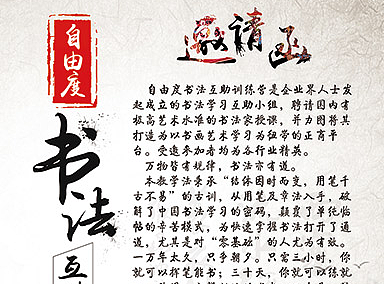 邀请函
自由度
书法
互
自由度书法互助训练营是企业界人士发
起成立的书法学习互助小组，聘请国内有
极高艺术水准的书法家授课，并力图将其
打造为以书画艺术学习为纽带的正商平
台。受邀参加者均为各行业精英。
万物皆有规律，书法亦有道。
本教学法秉承“结体因时而变，用笔千
古不易”的古训，从用笔及章法入手，破
解了中国书法学习的密码，颠覆了单纯临
帖的辛苦模式，为快速掌握书法打开了通
道，尤其是对“零基础”的人尤为有效。
一万年太久，只争朝夕。只需三小时，你
就可以挥笔能书；三十天，你就可以练就